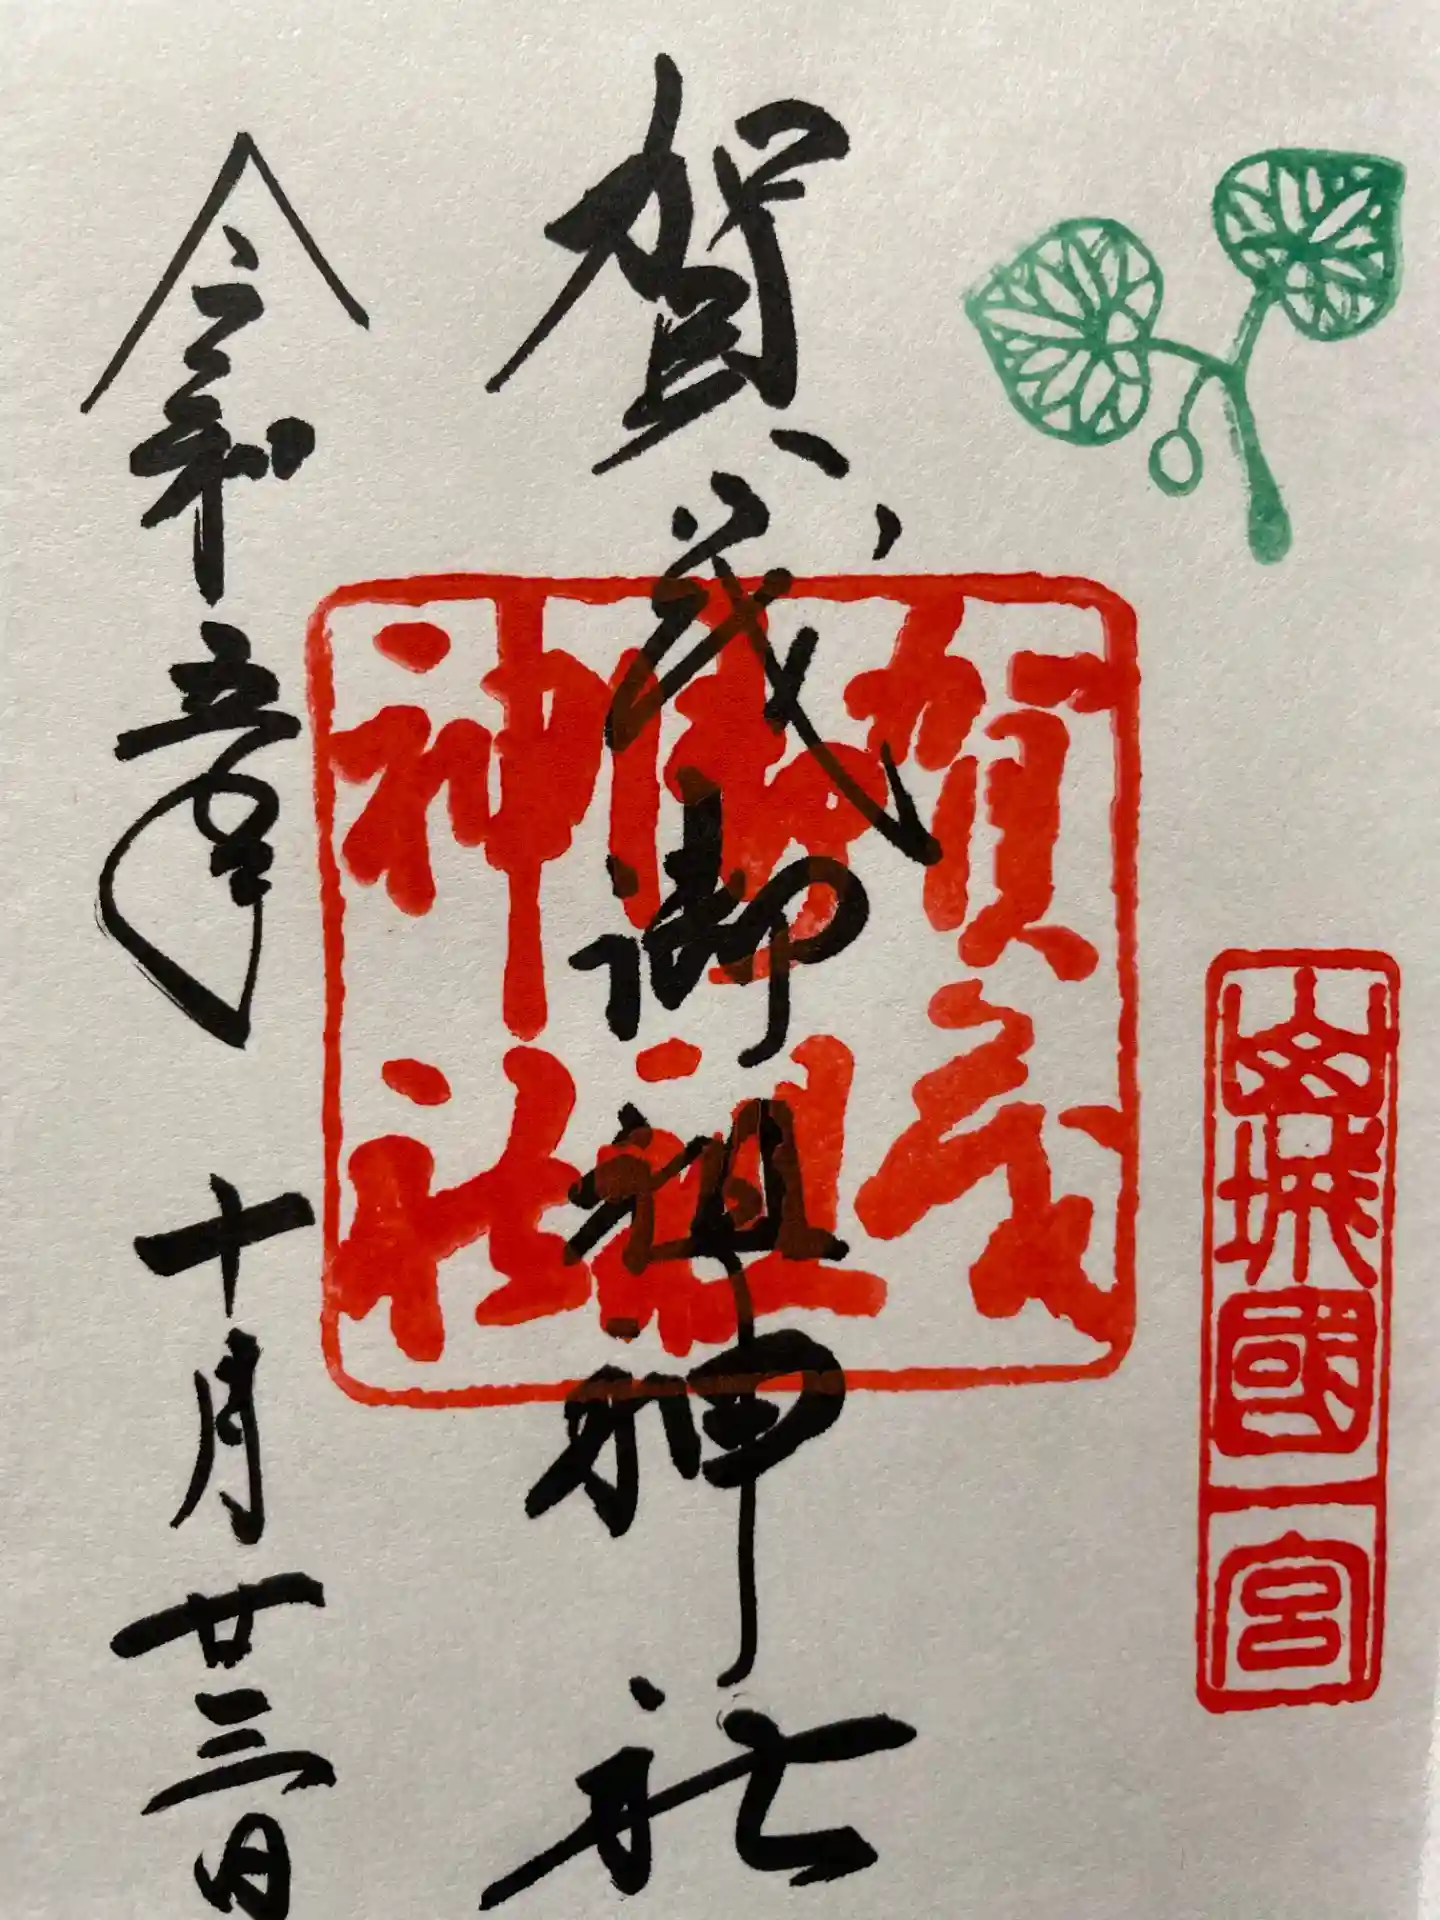 山城國一宮
賀茂御祖神社
賀茂
御祖
神社
令和五年 十月廿三日